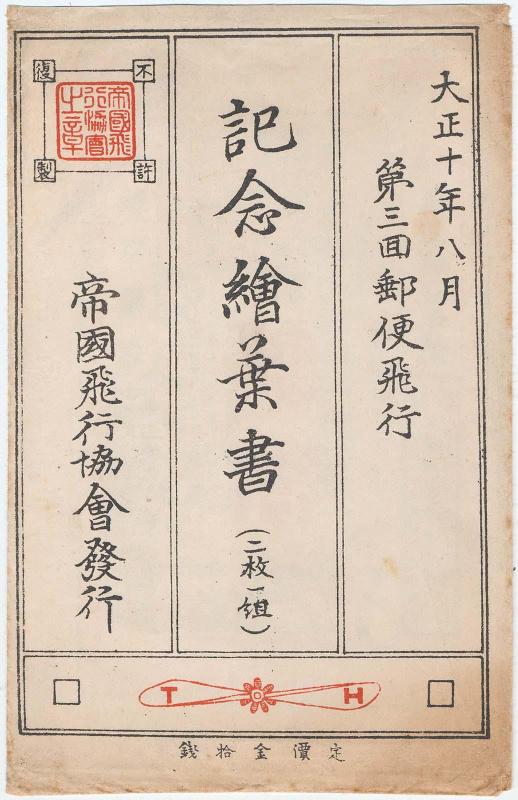 大正十年八月
第三回郵便飛行
記念繪葉書
(二枚一組)
不許復製
帝國飛行協會之章
帝國飛行協會發行
T H
定價金拾錢